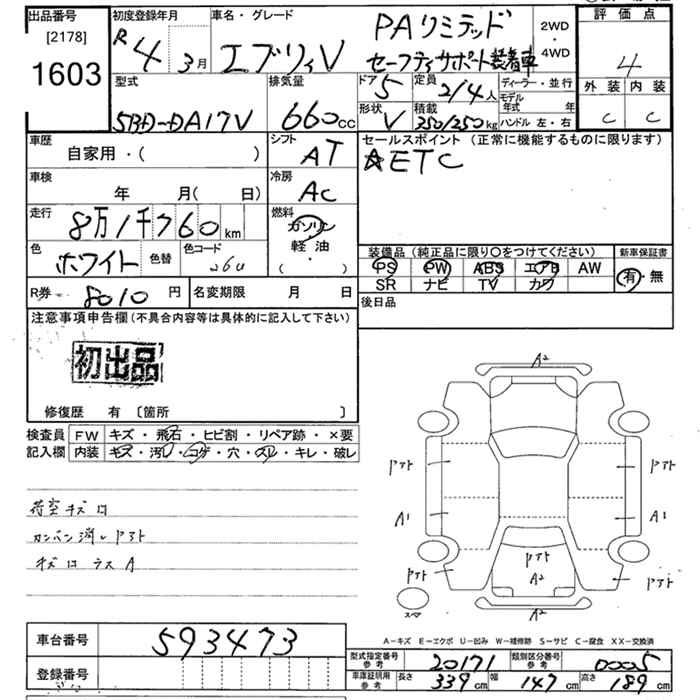 出品番号
[2178]
1603
初度登録年月
R 4 3月
車名・グレード
エブリィV
PAリミテッド
セーフティサポート装着車
2WD
・
4WD
評価点
4
外装 内装
C C
型式
5BD-DA17V
排気量
660cc
ドア 5
定員 2/4人
ディーラー・並行
モデル年式 年
形状 V
積載 350/250kg
ハンドル 左・右
車歴
自家用・( )
シフト
AT
セールスポイント(正常に機能するものに限ります)
☆ETC
車検
年 月( 日)
冷房
AC
走行
8万1千760km
燃料
ガソリン
軽油
( )
色
ホワイト
色替
色コード
26U
装備品(純正品に限り○をつけてください)
PS PW ABS エアB AW
SR ナビ TV カワ
新車保証書
有・無
R券 8010円
名変期限 月 日
後日品
注意事項申告欄(不具合内容等は具体的に記入して下さい)
初出品
修復歴 有 〔箇所 〕
検査員記入欄
FW キズ・飛石・ヒビ割・リペア跡・×要
内装 キズ・汚レ・コゲ・穴・スレ・キレ・破レ
荷室キズ口
カンバン消しアト
キズ口 ラス A
A2
アト
アト
A1
A1
アト
アト
A2
アト
A2
スペア
A-キズ E-エクボ U-凹み W-補修跡 S-サビ C-腐食 XX-交換済
車台番号
593473
登録番号
型式指定番号
参考
20171
類別区分番号
参考
0005
車庫証明用
参考
長さ 339cm
幅 147cm
高さ 189cm